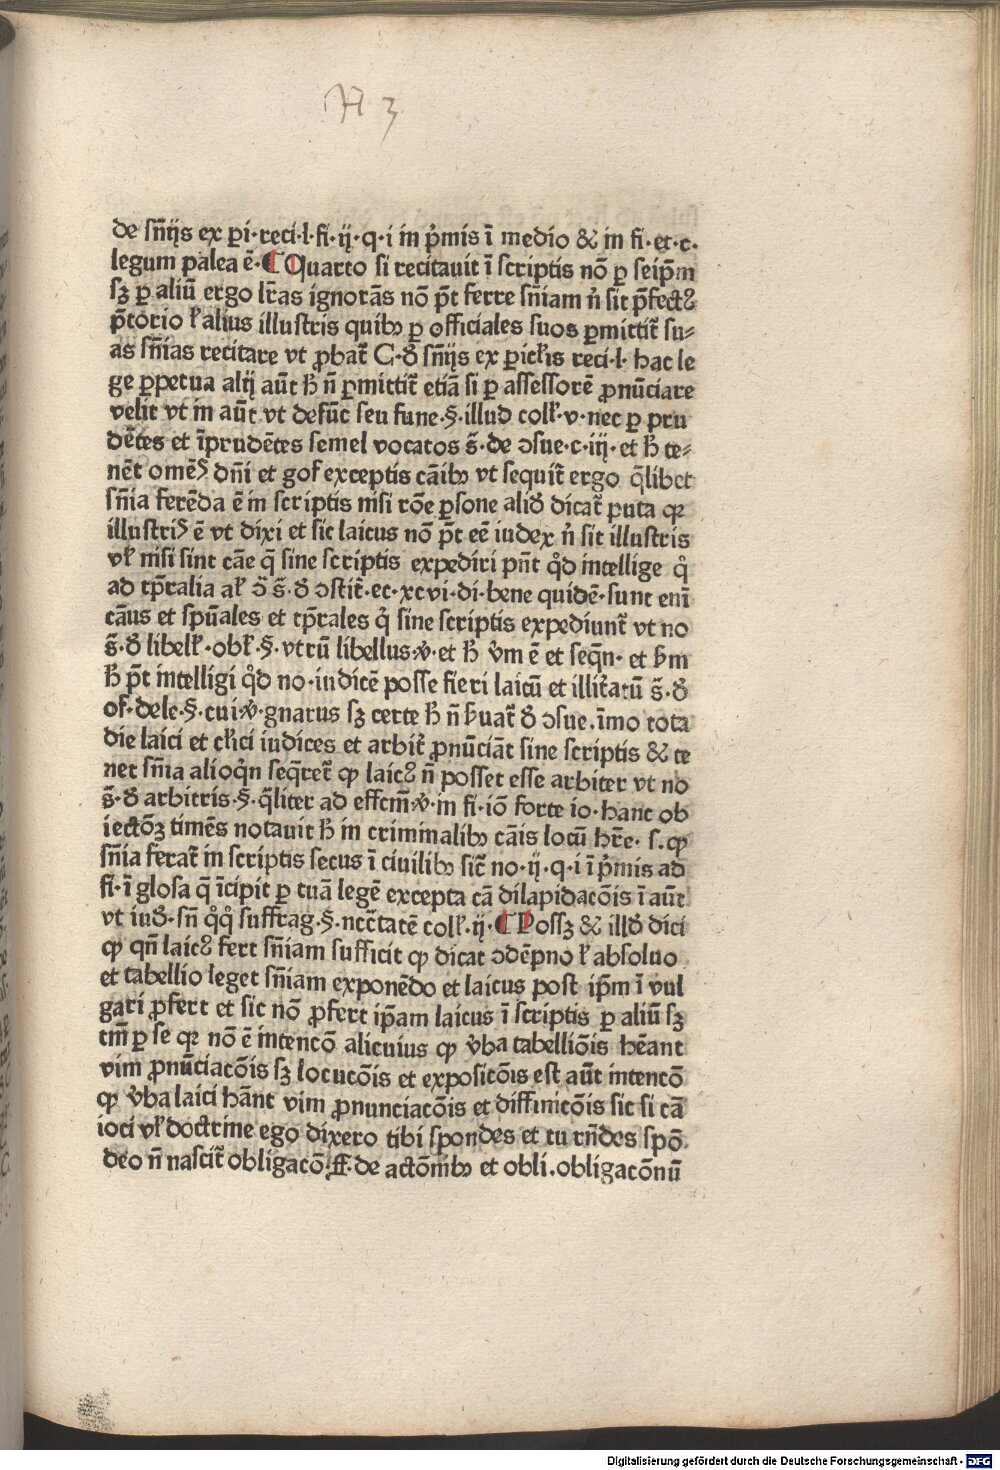 H 3
de sn̄ijs ex ꝑi·reci·l·fi·ij·q·i in p̄mis ī medio & in fi·et·c·
legum palea ē·⸿Quarto si recitauit ī scriptis nō ꝑ seip̄m
sꝫ ꝑ aliū ergo lr̄as ignorās nō p̄t ferre sn̄iam n̉ sit p̄fectꝰ
p̄torio ł alius illustris quibꝫ ꝑ officiales suos ꝑmittit᷑ su⸗
as sn̄ias recitare vt ꝓbat᷑ C·đ sn̄ijs ex ꝑicl̄is reci·l·hac le
ge ꝑpetua alij aūt ħ n̄ ꝑmittit᷑ etiā si ꝑ assessorē ꝓnūciare
velit vt in aūt vt defūc seu fune·§·illud coll̄·v·nec ꝑ pru
dētes et īprudētes semel vocatos s̄·de ɔsue·c·iij·et ħ te⸗
nēt omēs dn̄i et gof exceptis cāibꝫ vt sequit᷑ ergo q̄libet
sn̄ia ferēda ē in scriptis nisi rōe ꝑsone aliđ dicat᷑ puta qꝛ
illustris ē vt dixi et sic laicus nō p̄t eē iudex n̉ sit illustris
vł nisi sint cāe q̄ sine scriptis expediri pn̄t q̊d intellige q̊
ad tp̄ralia ał ɔ̄ s̄·đ ɔstit᷑·ec·xcvi·di·bene quidē·sunt enī
cāus et spūales et tp̄rales q̉ sine scriptis expediunt᷑ vt no
s̄·đ libell̄·obl̄·§·vtrū libellus·v̉·et ħ v̉m ē et seqn̄·et b̄m
ħ p̄t intelligi q̊d no·iudicē posse fieri laicū et illit᷑atū s̄·đ
of·dele·§·cui·v̉·gnarus sꝫ certe ħ n̄ ẜuat᷑ đ ɔsue·īmo tota
die laici et cl̄ici iudices et arbit᷑ ꝓnūciāt sine scriptis & te
net sn̄ia alioqn̄ seq̄ret᷑ ꝙ laicꝰ n̄ posset esse arbiter vt no
s̄·đ arbitris·§·q̄liter ad effcm̄·v̉·in fi·iō forte io·hanc ob
iectōꝫ timēs notauit ħ in criminalibꝫ cāis locū hr̄e·s·ꝙ
sn̄ia ferat᷑ in scriptis secus ī ciuilibꝫ sic̄ no·ij·q·i ī p̄mis ad
fi·ī glosa q̄ īcipit ꝑ tuā legē excepta cā dilapidacōis ī aūt
vt iuđ·sn̄ q̊q̊ suffrag·§·nec̄tatē coll̄·ij·⸿Possꝫ & illđ dici
ꝙ qn̄ laicꝰ fert sn̄iam sufficit ꝙ dicat ɔdēpno ł absoluo
et tabellio leget sn̄iam exponēdo et laicus post ip̄m ī vul
gari ꝓfert et sic nō ꝓfert ip̄am laicus ī scriptis ꝑ aliū sꝫ
tm̄ ꝑ se qꝛ nō ē intencō alicuius ꝙ v̉ba tabelliōis hēant
vim ꝓnūciacōis sꝫ locucōis et exposicōis est aūt intencō
ꝙ v̉ba laici hānt vim ꝓnunciacōis et diffinicōis sic si cā
ioci vł doctrine ego dixero tibi spondes et tu rn̄des spō
deo n̄ nascit᷑ obligacō·ff·de actōmbꝫ et obli·obligacōnū
Digitalisierung gefördert durch die Deutsche Forschungsgemeinschaft - DFG